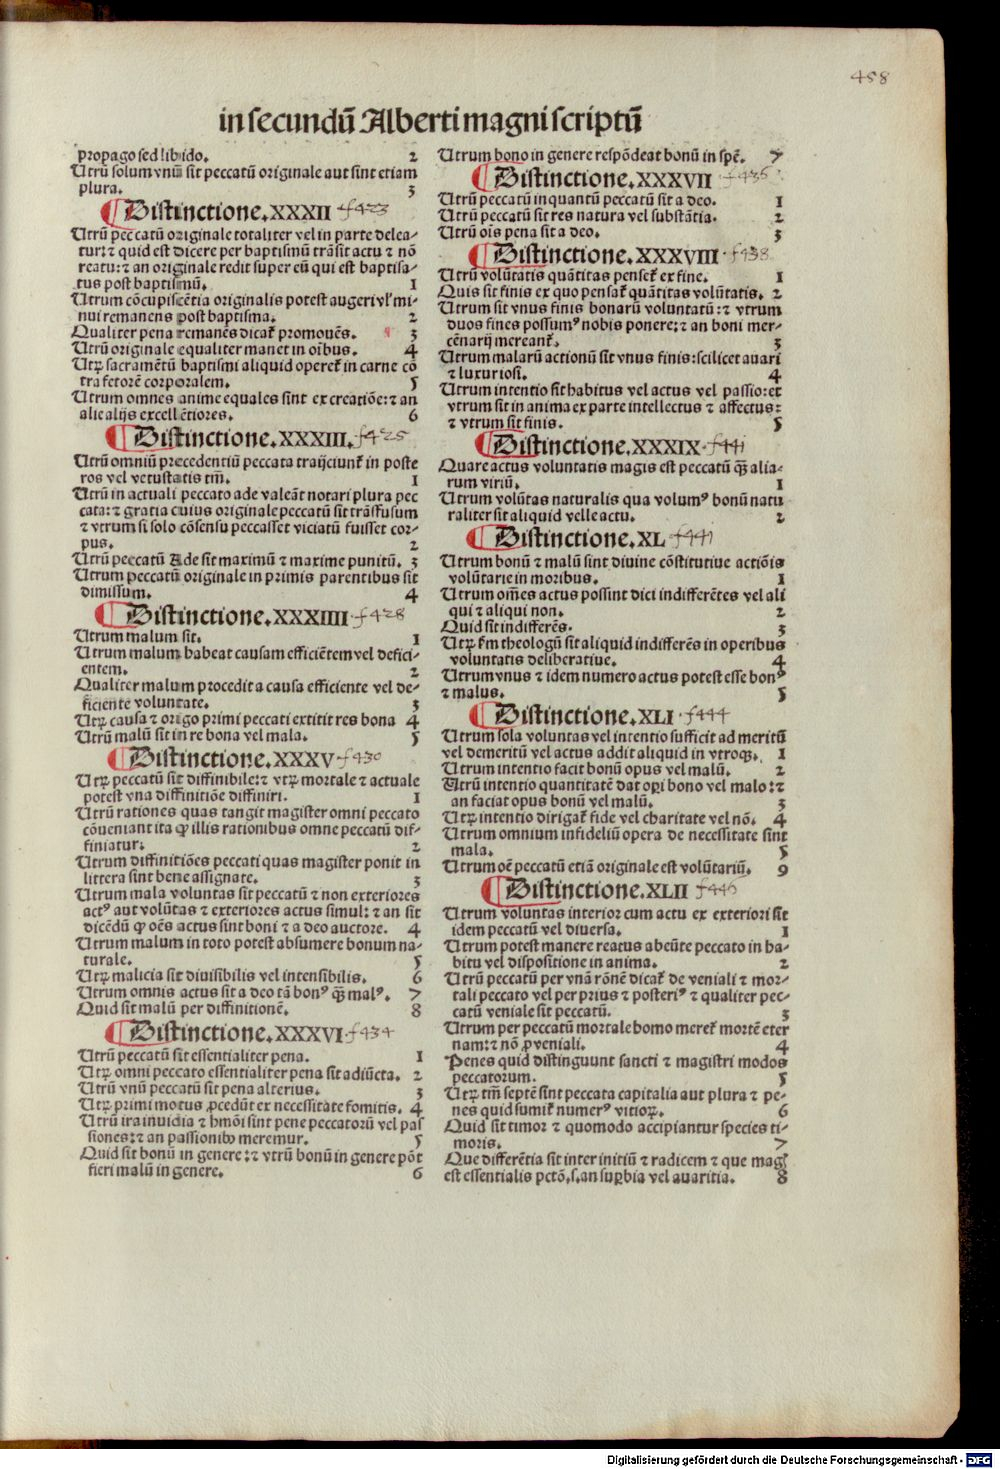 458
in secundū Alberti magni scriptū
propago sed libido. 2
Utrū solum vnū sit peccatū originale aut sint etiam
plura. 3
Distinctione.XXXII f423
Utrū peccatū originale totaliter vel in parte delea-
tur: ⁊ quid est dicere per baptismū trāsit actu ⁊ nō
reatu: ⁊ an originale redit super eū qui est baptisa-
tus post baptismū. 1
Utrum cōcupiscētia originalis potest augeri vl' mi-
nui remanens post baptisma. 2
Qualiter pena remanēs dicat̄ promouēs. 3
Utrū originale equaliter manet in oībus. 4
Utꝝ sacramētū baptismi aliquid operet̄ in carne cō
tra fetorē corporalem. 5
Utrum omnes anime equales sint ex creatiōe: ⁊ an
alie alijs excellētiores. 6
Distinctione.XXXIII. f425
Utrū omniū precedentiū peccata traijciunt̄ in poste
ros vel vetustatis tm̄. 1
Utrū in actuali peccato ade valeāt notari plura pec
cata: ⁊ gratia cuius originale peccatū sit trāsfusum
⁊ vtrum si solo cōsensu peccasset viciatū fuisset cor-
pus. 2
Utrū peccatū Ade sit maximū ⁊ maxime punitū. 3
Utrum peccatū originale in primis parentibus sit
dimissum. 4
Distinctione.XXXIIII. f428
Utrum malum sit. 1
Utrum malum habeat causam efficiētem vel defici-
entem. 2
Qualiter malum procedit a causa efficiente vel de-
ficiente voluntate. 3
Utꝝ causa ⁊ origo primi peccati extitit res bona 4
Utrū malū sit in re bona vel mala. 5
Distinctione.XXXV f430
Utꝝ peccatū sit diffinibile: ⁊ vtꝝ mortale ⁊ actuale
potest vna diffinitiōe diffiniri. 1
Utrū rationes quas tangit magister omni peccato
cōueniant ita ꝙ illis rationibus omne peccatū dif-
finiatur: 2
Utrum diffinitiōes peccati quas magister ponit in
littera sint bene assignate. 3
Utrum mala voluntas sit peccatū ⁊ non exteriores
actꝰ aut volūtas ⁊ exteriores actus simul: ⁊ an sit
dicēdū ꝙ oēs actus sint boni ⁊ a deo auctore. 4
Utrum malum in toto potest absumere bonum na-
turale. 5
Utꝝ malicia sit diuisibilis vel intensibilis. 6
Utrum omnis actus sit a deo tā bonꝰ q̄ꝫ malꝰ. 7
Quid sit malū per diffinitionē. 8
Distinctione.XXXVI f434
Utrū peccatū sit essentialiter pena. 1
Utꝝ omni peccato essentialiter pena sit adiūcta. 2
Utrū vnū peccatū sit pena alterius. 3
Utꝝ primi motus ꝓcedūt ex necessitate fomitis. 4
Utrū ira inuidia ⁊ hmōi sint pene peccatorū vel pas
siones: ⁊ an passionibꝰ meremur. 5
Quid sit bonū in genere: ⁊ vtrū bonū in genere pōt
fieri malū in genere. 6
Utrum bono in genere respōdeat bonū in spē. 7
Distinctione.XXXVII f436
Utrū peccatū inquantū peccatū sit a deo. 1
Utrū peccatū sit res natura vel substātia. 2
Utrū oīs pena sit a deo. 3
Distinctione.XXXVIII f438
Utrū volūtatis quātitas penset̄ ex fine. 1
Quis sit finis ex quo pensat̄ quātitas volūtatis. 2
Utrum sit vnus finis bonarū voluntatū: ⁊ vtrum
duos fines possumꝰ nobis ponere: ⁊ an boni mer-
cēnarij mereant̄. 3
Utrum malarū actionū sit vnus finis: scilicet auari
⁊ luxuriosi. 4
Utrum intentio sit habitus vel actus vel passio: et
vtrum sit in anima ex parte intellectus ⁊ affectus:
⁊ vtrum sit finis. 5
Distinctione.XXXIX. f441
Quare actus voluntatis magis est peccatū q̄ꝫ alia-
rum viriū. 1
Utrum volūtas naturalis qua volumꝰ bonū natu
raliter sit aliquid velle actu. 2
Distinctione.XL f441
Utrum bonū ⁊ malū sint diuine cōstitutiue actiōis
volūtarie in moribus. 1
Utrum om̄es actus possint dici indifferētes vel ali
qui ⁊ aliqui non. 2
Quid sit indifferēs. 3
Utꝝ k̄m theologū sit aliquid indifferēs in operibus
voluntatis deliberatiue. 4
Utrum vnus ⁊ idem numero actus potest esse bonꝰ
⁊ malus. 5
Distinctione.XLI f444
Utrum sola voluntas vel intentio sufficit ad meritū
vel demeritū vel actus addit aliquid in vtroqꝫ. 1
Utrum intentio facit bonū opus vel malū. 2
Utrū intentio quantitatē dat oꝑi bono vel malo: ⁊
an faciat opus bonū vel malū. 3
Utꝝ intentio dirigat̄ fide vel charitate vel nō. 4
Utrum omnium infideliū opera de necessitate sint
mala. 5
Utrum oē peccatū etiā originale est volūtariū. 9
Distinctione.XLII f446
Utrum voluntas interior cum actu ex exteriori sit
idem peccatū vel diuersa. 1
Utrum potest manere reatus abeūte peccato in ha-
bitu vel dispositione in anima. 2
Utrū peccatū per vnā rōnē dicat̄ de veniali ⁊ mor-
tali peccato vel per prius ⁊ posteriꝰ ⁊ qualiter pec-
catū veniale sit peccatū. 3
Utrum per peccatū mortale homo meret̄ mortē eter
nam: ⁊ nō ꝓ veniali. 4
Penes quid distinguunt sancti ⁊ magistri modos
peccatorum. 5
Utꝝ tm̄ septē sint peccata capitalia aut plura ⁊ pe-
nes quid sumit̄ numerꝰ vitioꝝ. 6
Quid sit timor ⁊ quomodo accipiantur species ti-
moris. 7
Que differētia sit inter initiū ⁊ radicem ⁊ que mag̃
est essentialis pctō, s. an suꝑbia vel auaritia. 8
Digitalisierung gefördert durch die Deutsche Forschungsgemeinschaft - DFG